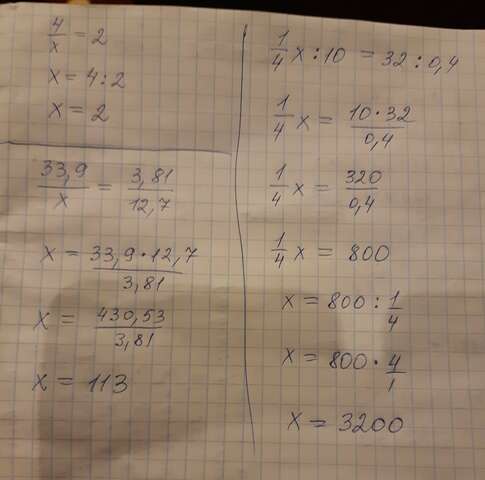 4/x = 2
x = 4 : 2
x = 2
33,9/x = 3,81/12,7
x = 33,9 · 12,7/3,81
x = 430,53/3,81
x = 113
1/4 x : 10 = 32 : 0,4
1/4 x = 10 · 32/0,4
1/4 x = 320/0,4
1/4 x = 800
x = 800 : 1/4
x = 800 · 4/1
x = 3200